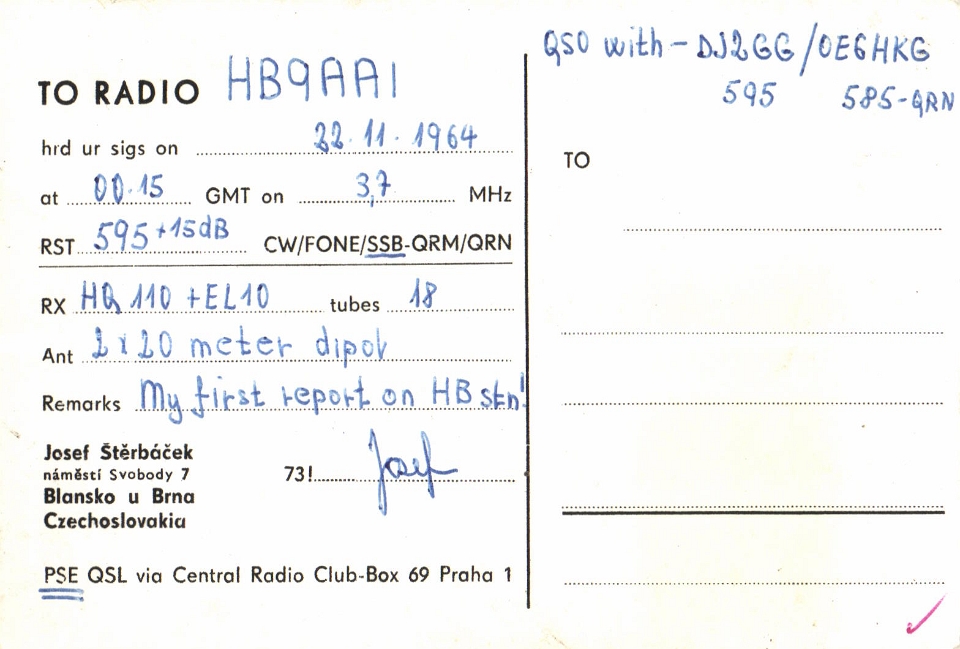 TO RADIO HB9AAI
hrd ur sigs on 22.11.1964
at 00.15 GMT on 3,7 MHz
RST 595+15dB CW/FONE/SSB-QRM/QRN
RX HQ 110 +EL10 tubes 18
Ant 2x20 meter dipol
Remarks My first report on HB stn!
Josef Štěrbáček
náměstí Svobody 7
Blansko u Brna
Czechoslovakia
73! Josef
PSE QSL via Central Radio Club-Box 69 Praha 1
QSO with - DJ2GG/OE6HKG
595 585-QRN
TO